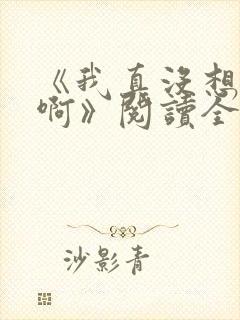 《我真没想
啊》閱讀全
沙影青